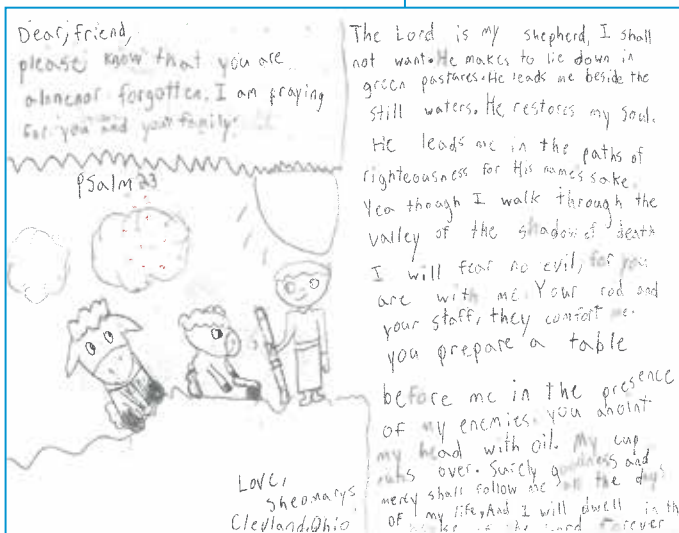 Dear, friend,
please know that you are
alonenor forgotten. I am praying
for you and your family.
Psalm 23
Love,
Sheomarys
Clevland, Ohio
The Lord is my shepherd, I shall
not want. He makes to lie down in
green pastures. He leads me beside the
still waters. He restores my soul.
He leads me in the paths of
righteousness for His names sake.
Yea though I walk through the
valley of the shadow of death
I will fear no evil, for you
are with me. Your rod and
your staff, they comfort me.
you prepare a table
before me in the presence
of my enemies. you anoint
my head with oil. My cup
runs over. Surely goodness and
mercy shall follow me all the days
of my life, And I will dwell in the
of the Lord Forever